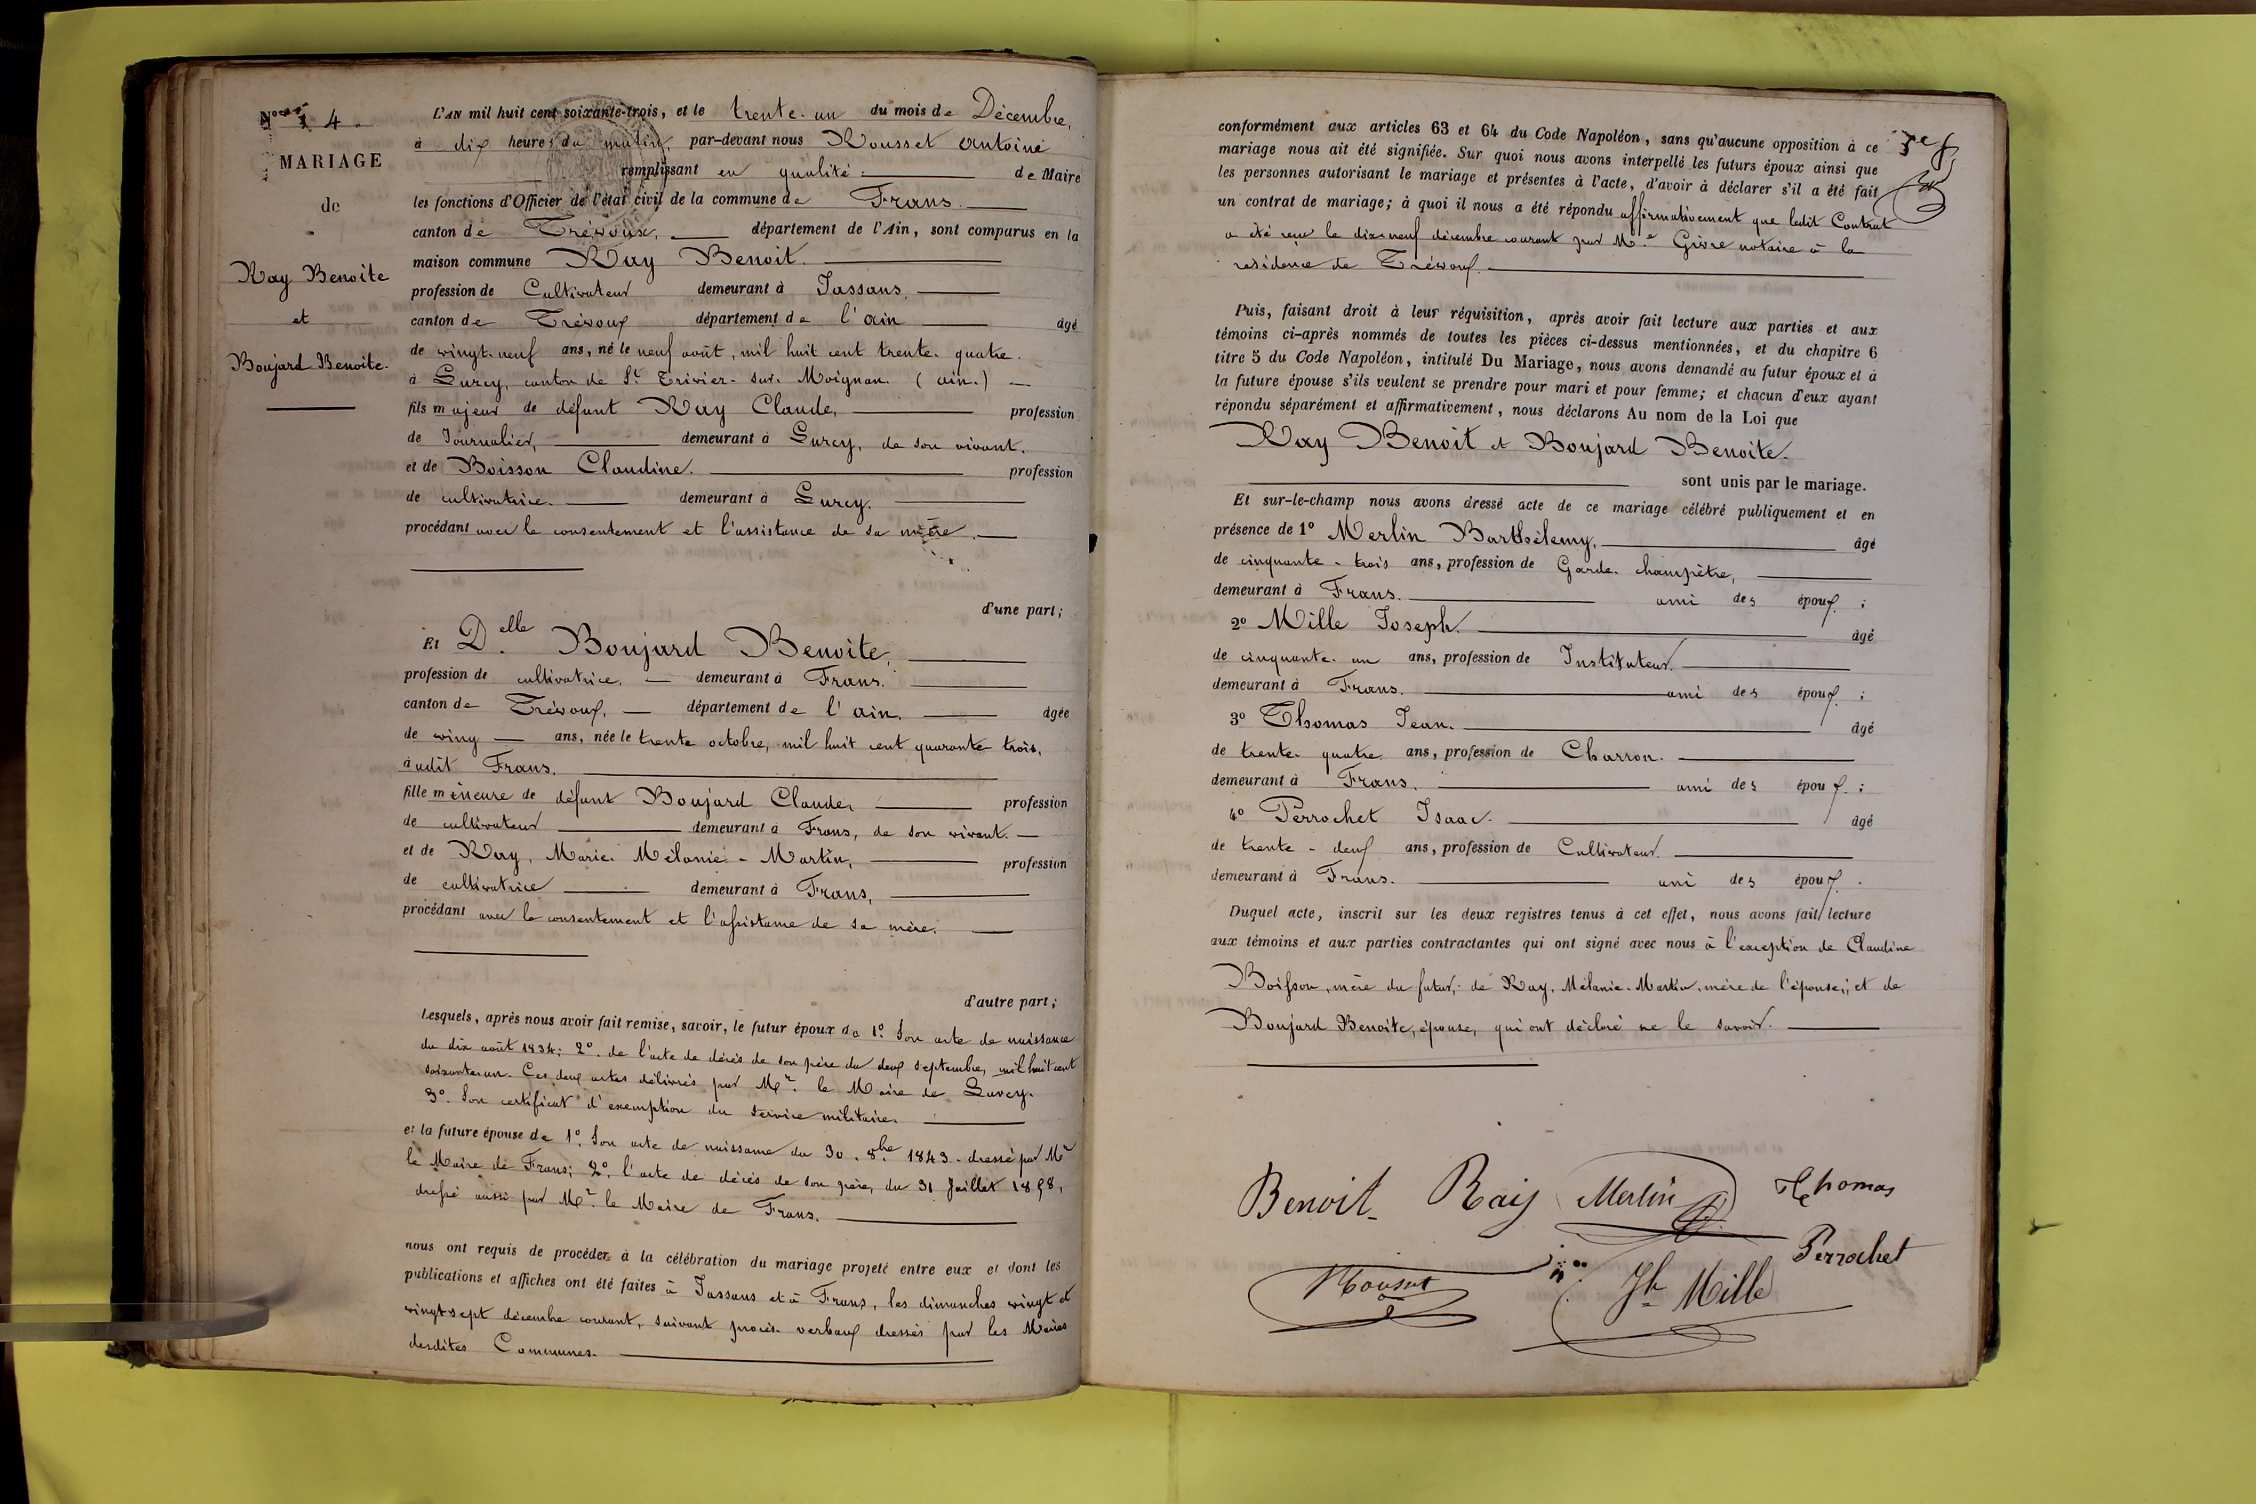 4.
MARIAGE
de
Ray Benoite
et
Boujard Benoite.
L'AN mil huit cent soixante-trois, et le trente-un du mois de Décembre,
à dix heures du matin, par-devant nous Rousset Antoine
remplissant en qualité de Maire
les fonctions d'Officier de l'état civil de la commune de Frans.
canton de Trévoux, département de l'Ain, sont comparus en la
maison commune Ray Benoit.
profession de Cultivateur demeurant à Jassans,
canton de Trévoux département de l'ain âgé
de vingt-neuf ans, né le neuf août, mil huit cent trente-quatre.
à Lurcy, canton de St Trivier-sur-Moignan. (ain.)
fils majeur de défunt Ray Claude, profession
de Journalier, demeurant à Lurcy, de son vivant.
et de Boisson Claudine. profession
de cultivatrice. demeurant à Lurcy.
procédant avec le consentement et l'assistance de sa mère.
d'une part;
Et Delle Boujard Benoite,
profession de cultivatrice, demeurant à Frans.
canton de Trévoux, département de l'ain. âgée
de ving ans, née le trente octobre, mil huit cent quarante trois,
audit Frans.
fille mineure de défunt Boujard Claude, profession
de cultivateur demeurant à Frans, de son vivant.
et de Ray, Marie-Mélanie-Martin, profession
de cultivatrice demeurant à Frans,
procédant avec le consentement et l'assistance de sa mère.
d'autre part;
Lesquels, après nous avoir fait remise, savoir, le futur époux de 1º Son acte de naissance
du dix août 1834; 2º de l'acte de décès de son père du deux septembre, mil huit cent
soixante-un. Ces deux actes délivrés par Mr. le Maire de Lurcy.
3º Son certificat d'exemption du service militaire.
et la future épouse de 1º Son acte de naissance du 30. 8bre 1843. dressé par Mr
le Maire de Frans; 2º l'acte de décès de son père, du 31 Juillet 1858,
dressé aussi par Mr. le Maire de Frans.
nous ont requis de procéder à la célébration du mariage projeté entre eux et dont les
publications et affiches ont été faites à Jassans et à Frans, les dimanches vingt et
vingt-sept décembre courant, suivant procès-verbaux dressés par les Maires
desdites Communes.
conformément aux articles 63 et 64 du Code Napoléon, sans qu'aucune opposition à ce
mariage nous ait été signifiée. Sur quoi nous avons interpellé les futurs époux ainsi que
les personnes autorisant le mariage et présentes à l'acte, d'avoir à déclarer s'il a été fait
un contrat de mariage; à quoi il nous a été répondu affirmativement que ledit Contrat
a été reçu le dix-neuf décembre courant par Me Givre notaire à la
residence de Trévoux.
Puis, faisant droit à leur réquisition, après avoir fait lecture aux parties et aux
témoins ci-après nommés de toutes les pièces ci-dessus mentionnées, et du chapitre 6
titre 5 du Code Napoléon, intitulé Du Mariage, nous avons demandé au futur époux et à
la future épouse s'ils veulent se prendre pour mari et pour femme; et chacun d'eux ayant
répondu séparément et affirmativement, nous déclarons Au nom de la Loi que
Ray Benoit et Boujard Benoite.
sont unis par le mariage.
Et sur-le-champ nous avons dressé acte de ce mariage célébré publiquement et en
présence de 1º Merlin Barthélemy, âgé
de cinquante-trois ans, profession de Garde-champêtre,
demeurant à Frans. ami des époux;
2º Mille Joseph. âgé
de cinquante-un ans, profession de Instituteur.
demeurant à Frans. ami des époux;
3º Thomas Jean. âgé
de trente-quatre ans, profession de Charron.
demeurant à Frans. ami des époux;
4º Perrochet Isaac. âgé
de trente-deux ans, profession de Cultivateur.
demeurant à Frans. ami des époux.
Duquel acte, inscrit sur les deux registres tenus à cet effet, nous avons fait lecture
aux témoins et aux parties contractantes qui ont signé avec nous à l'exception de Claudine
Boisson, mère du futur, de Ray, Mélanie-Martin, mère de l'épouse; et de
Boujard Benoite, épouse, qui ont déclaré ne le savoir.
Benoit Ray Merlin Thomas
Perrochet
Rousset Jh Mille